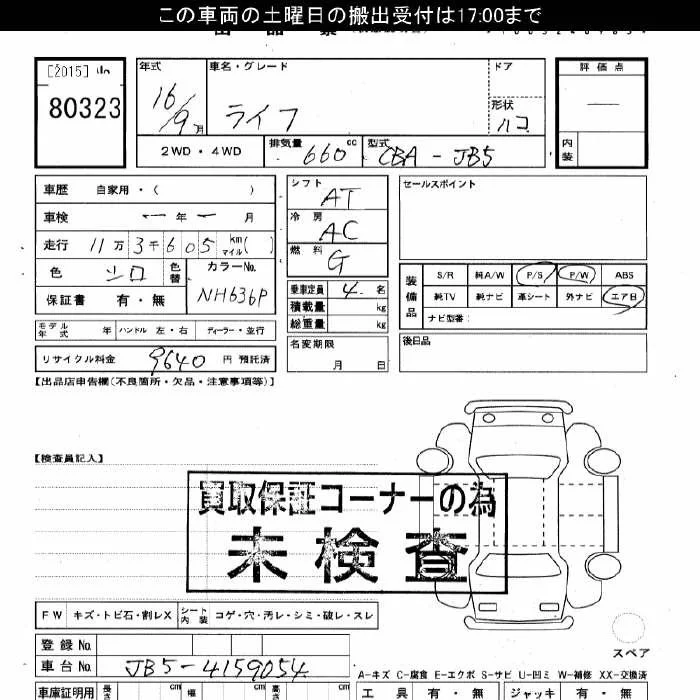 この車両の土曜日の搬出受付は17:00まで
[2015] 山
80323
年式 16/9月
車名・グレード ライフ
ドア
形状 ハコ
評価点 —
内装
2WD・4WD
排気量 660 cc
型式 CBA-JB5
車歴 自家用・( )
車検 — 年 — 月
走行 11万3千605 km マイル( )
色 シロ 色替
カラーNo. NH636P
保証書 有・無
シフト AT
冷房 AC
燃料 G
乗車定員 4名
積載量 kg
総重量 kg
セールスポイント
装備品 S/R 純A/W P/S P/W ABS
純TV 純ナビ 革シート 外ナビ エアB
ナビ型番:
モデル年式 年 ハンドル 左・右 ディーラー・並行
リサイクル料金 9640 円 預託済
名変期限 月 日
後日品
【出品店申告欄(不良箇所・欠品・注意事項等)】
【検査員記入】
買取保証コーナーの為
未検査
FW キズ・トビ石・割レX シート内装 コゲ・穴・汚レ・シミ・破レ・スレ
スペア
登録No.
車台No. JB5-4159054
A-キズ C-腐食 E-エクボ S-サビ U-凹ミ W-補修 XX-交換済
車庫証明用 長さ cm 幅 cm 高さ cm
工具 有・無 ジャッキ 有・無